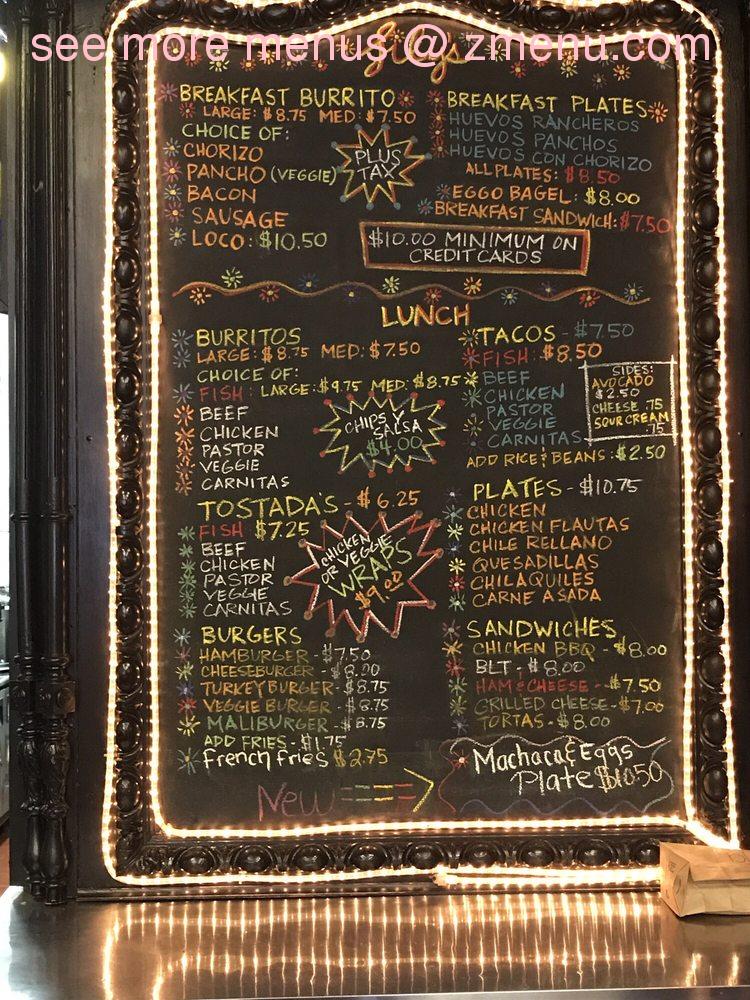 see more menus @ zmenu.com
BREAKFAST BURRITO
LARGE: $8.75 MED: $7.50
CHOICE OF:
CHORIZO
PANCHO (VEGGIE)
BACON
SAUSAGE
LOCO: $10.50
PLUS
TAX
BREAKFAST PLATES
HUEVOS RANCHEROS
HUEVOS PANCHOS
HUEVOS CON CHORIZO
ALL PLATES: $8.50
EGGO BAGEL: $8.00
BREAKFAST SANDWICH: $7.50
$10.00 MINIMUM ON
CREDIT CARDS
LUNCH
BURRITOS
LARGE: $8.75 MED: $7.50
CHOICE OF:
FISH: LARGE: $9.75 MED: $8.75
BEEF
CHICKEN
PASTOR
VEGGIE
CARNITAS
CHIPS Y
SALSA
$4.00
TACOS - $7.50
FISH: $8.50
BEEF
CHICKEN
PASTOR
VEGGIE
CARNITAS
SIDES:
AVOCADO
$2.50
CHEESE .75
SOUR CREAM
.75
ADD RICE & BEANS: $2.50
TOSTADA'S - $6.25
FISH $7.25
BEEF
CHICKEN
PASTOR
VEGGIE
CARNITAS
CHICKEN
OR VEGGIE
WRAPS
$9.00
PLATES - $10.75
CHICKEN
CHICKEN FLAUTAS
CHILE RELLANO
QUESADILLAS
CHILAQUILES
CARNE ASADA
BURGERS
HAMBURGER - $7.50
CHEESEBURGER - $8.00
TURKEY BURGER - $8.75
VEGGIE BURGER - $8.75
MALIBURGER - $8.75
ADD FRIES - $1.75
French Fries $2.75
SANDWICHES
CHICKEN BBQ - $8.00
BLT - $8.00
HAM & CHEESE - $7.50
GRILLED CHEESE - $7.00
TORTAS - $8.00
New
Machaca & Eggs
Plate $10.50